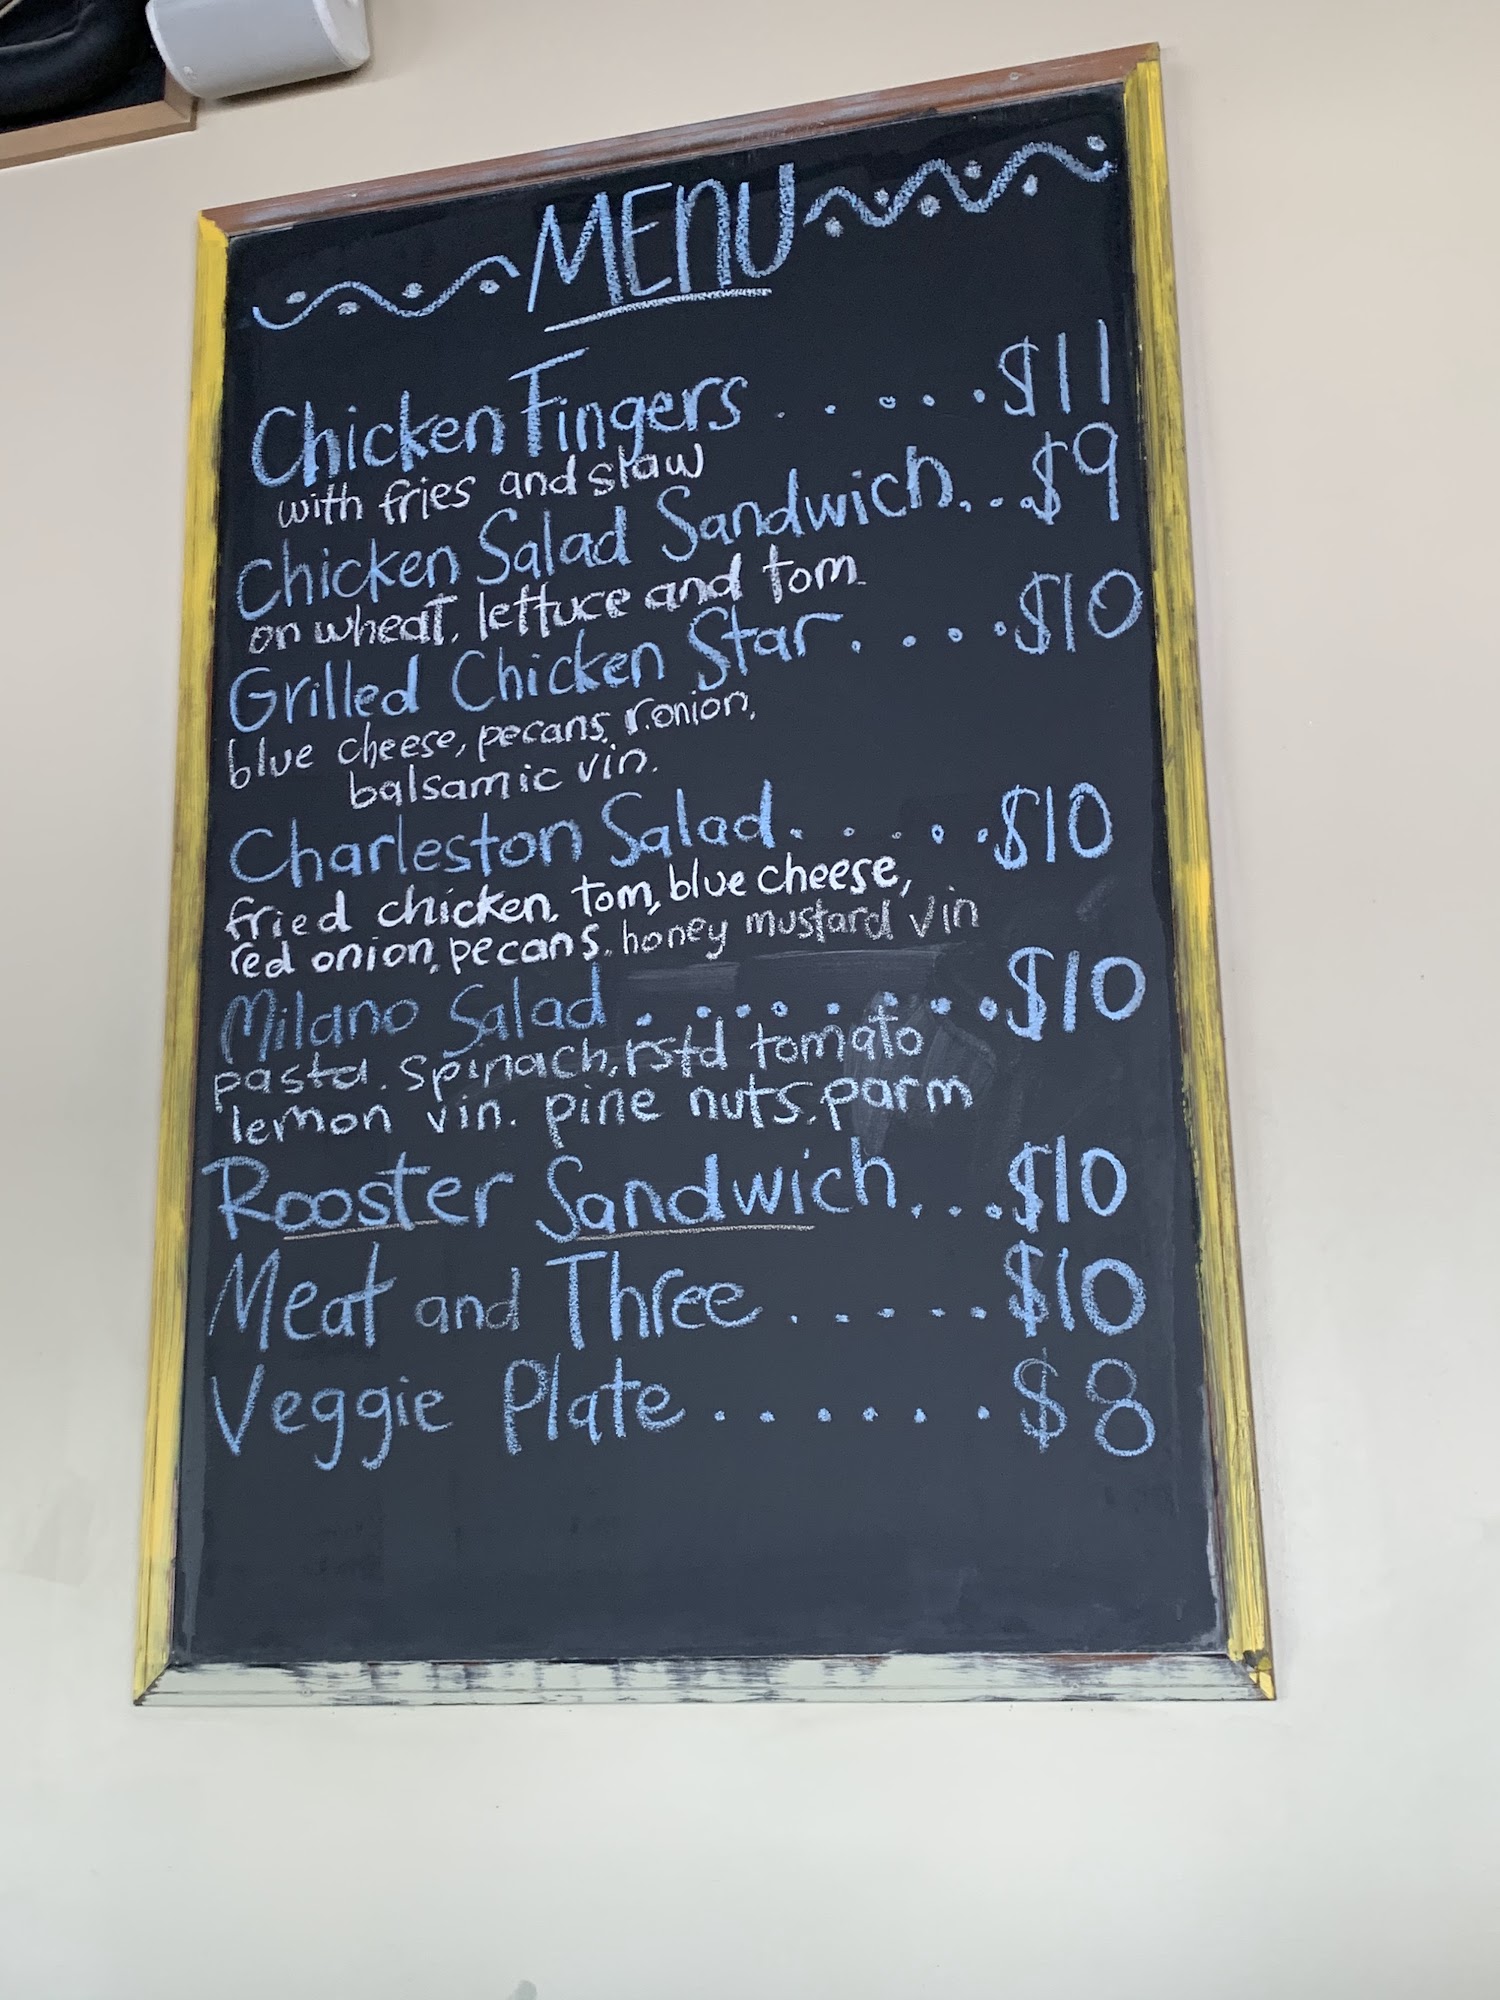 MENU
Chicken Fingers . . . . . $11
with fries and slaw
Chicken Salad Sandwich. . . $9
on wheat, lettuce and tom.
Grilled Chicken Star . . . . $10
blue cheese, pecans, r.onion,
balsamic vin.
Charleston Salad. . . . . $10
fried chicken, tom, blue cheese,
red onion, pecans, honey mustard vin
Milano Salad . . . . . . . . $10
pasta, spinach, rstd tomato
lemon vin. pine nuts, parm
Rooster Sandwich . . . $10
Meat and Three . . . . . $10
Veggie Plate . . . . . . $8